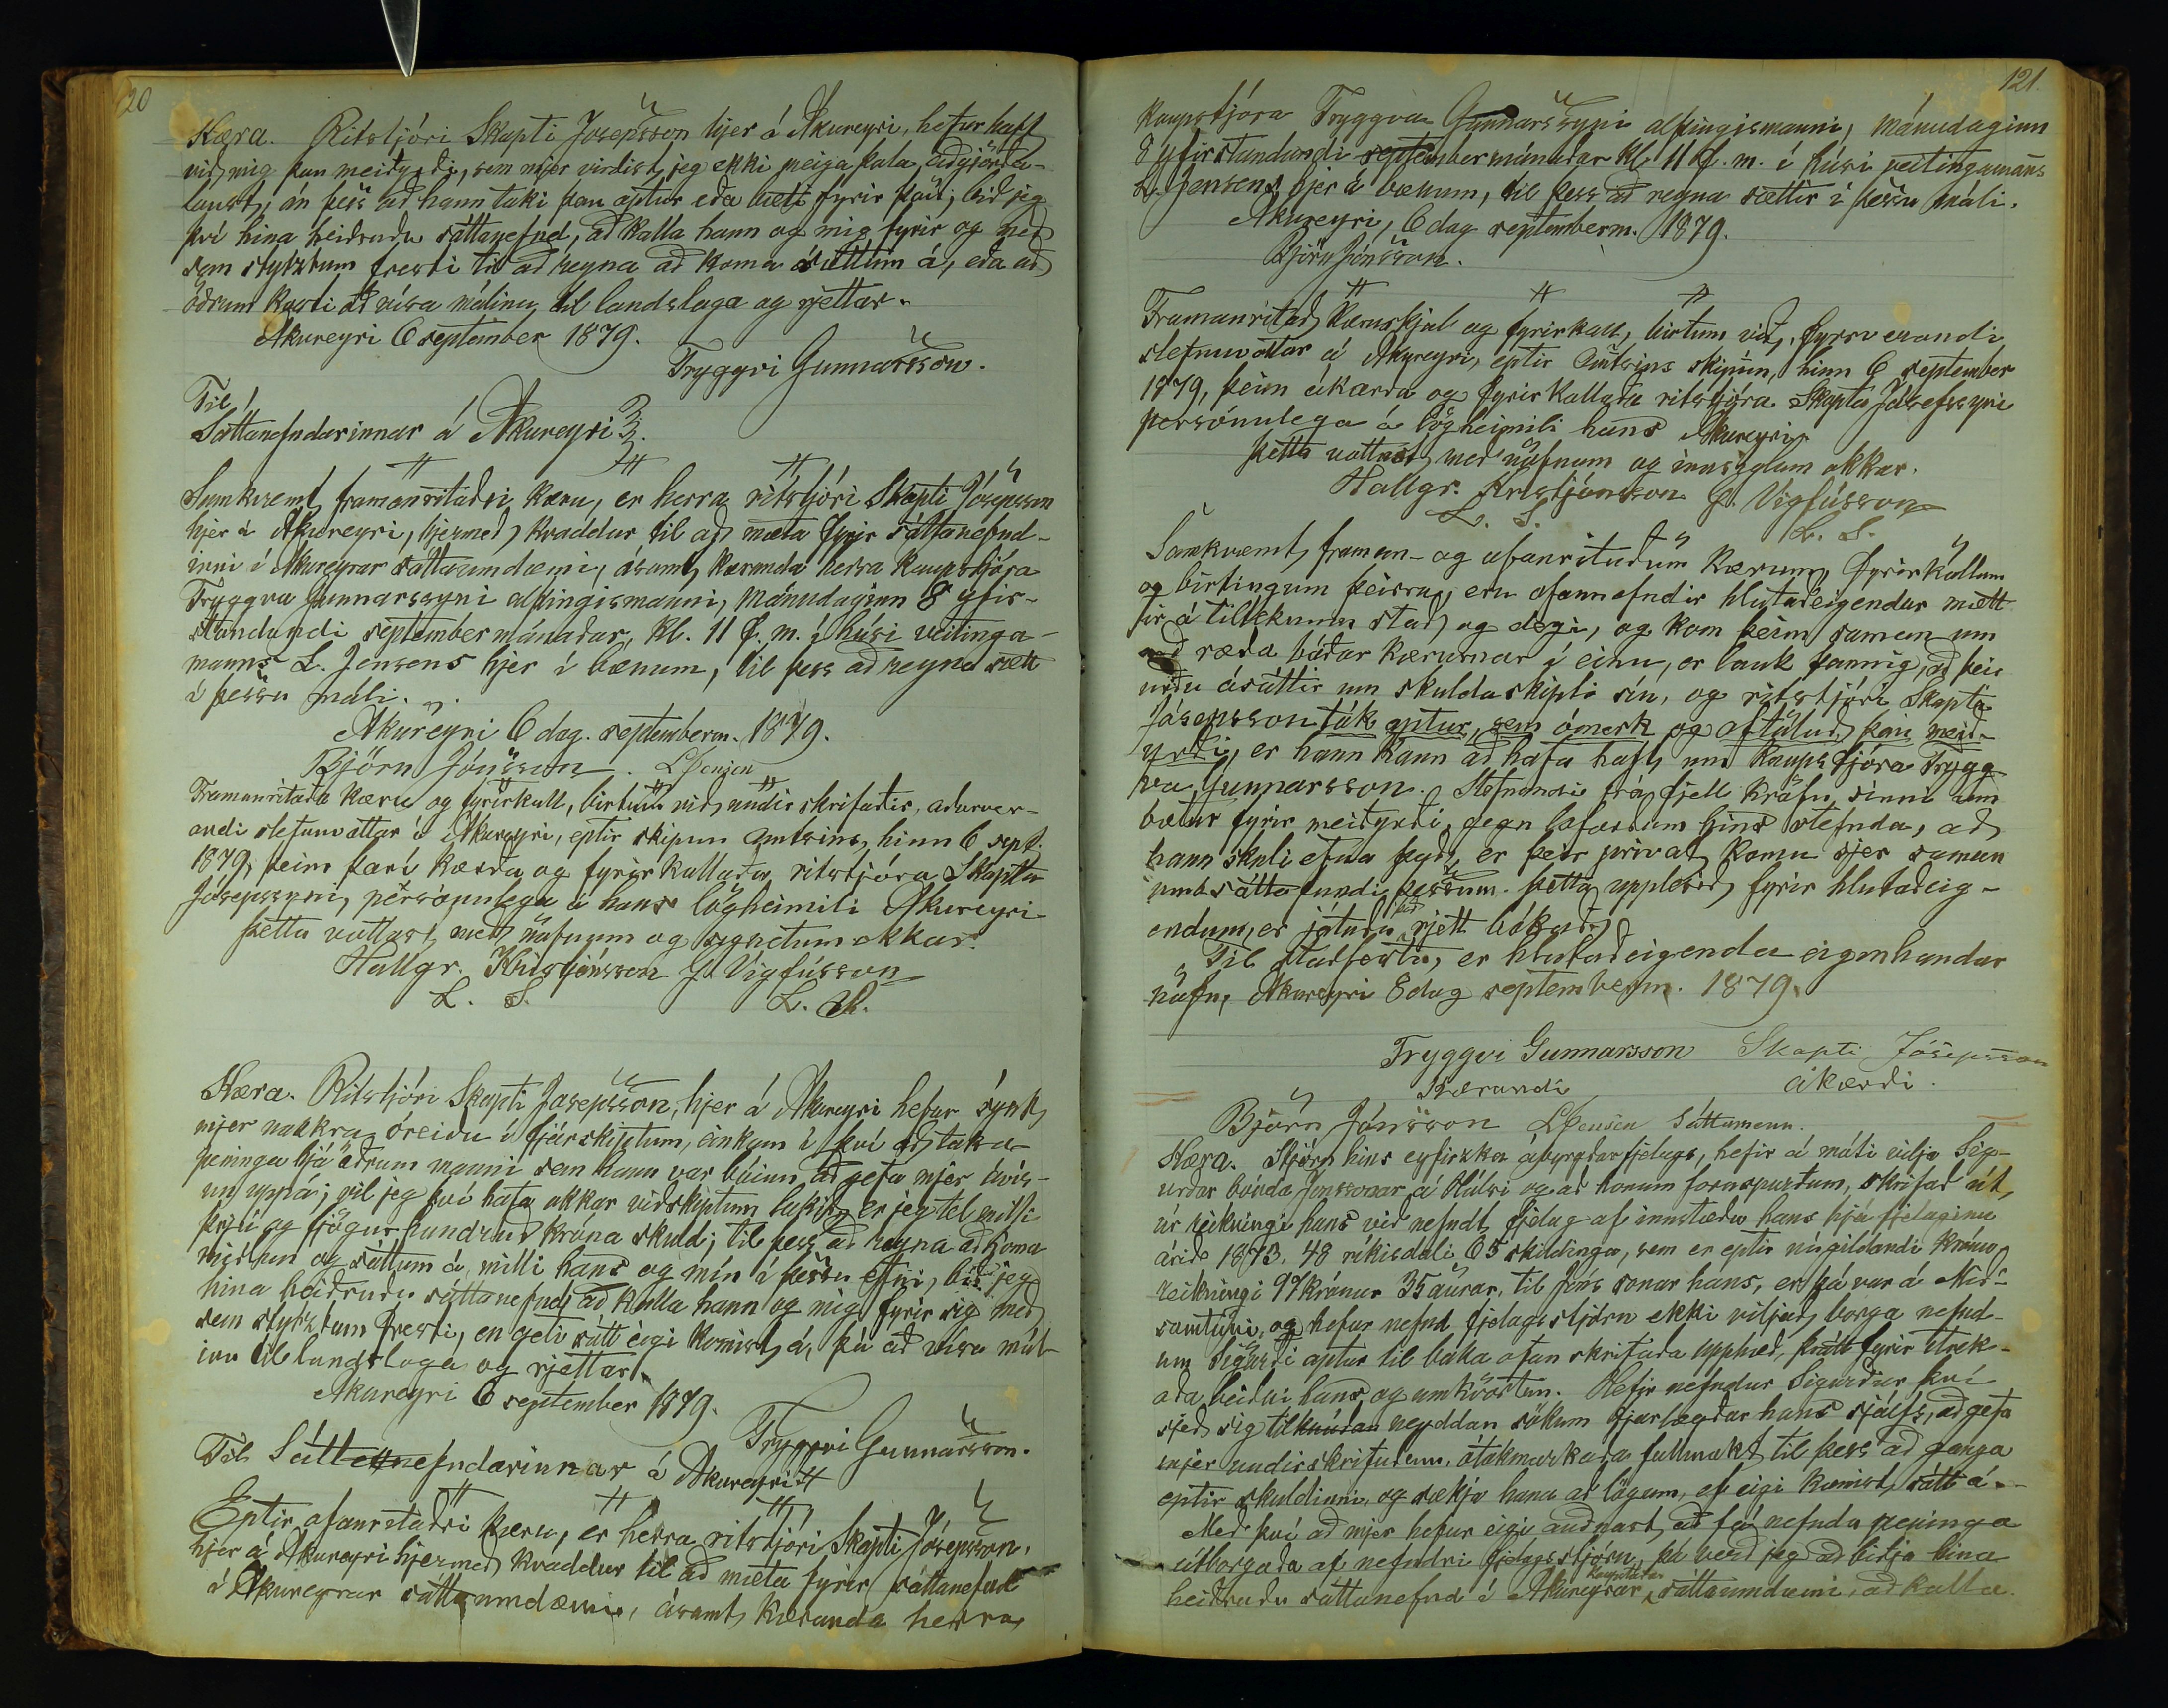 20
Kæra. Ritstjóri Skapti Jósepsson hjer á Akureyri, hefur haft
við mig þau meiðyrði, sem mjer virðist jeg ekki meiga þola aðgjörða-
laust, án þess að hann taki þau aptur eða bæti fyrir þau; bið jeg
því hina heiðruðu sáttanefnd, að kalla hann og mig fyrir og með
sem stytztum fresti til að reyna að koma sáttum á, eða að
öðrum kosti að vísa málinu til landslaga og rjettar.
Akureyri 6 september 1879.
Tryggvi Gunnarsson.
Til
Sáttanefndarinnar á Akureyri
Samkvæmt framanritaðri kæru, er herra ritstjóri Skapti Jósepsson
hjer á Akureyri, hjermeð kvaddur til að mæta fyrir sáttanefnd-
inni í Akureyrar sáttaumdæmi, ásamt kæranda herra kaupstjóra
Tryggva Gunnarssyni alþingismanni, mánudaginn 8 yfir-
standandi septembermánaðar, kl. 11 f. m. í húsi veitinga-
manns L. Jensens hjer í bænum, til þess að reyna sætt
í þessu máli.
Akureyri 6 dag. septemberm. 1879.
Björn Jónsson. LJensen
Framanritaða kæru og fyrirkall, birtum við undirskrifaðir, aðurver-
andi stefnuvottar á Akureyri, eptir skipun amtsins, hinn 6 sept.
1879, þeim þarí kærða og fyrirkallaða ritstjóra Skapta
Jósepssyni, persónulega á hans lögheimili Akureyri
þetta vottast með nöfnum og signetum okkar.
Hallgr. Kristjánsson J. Vigfússon
L. S. L. S.
Kæra. Ritstjóri Skapti Jósepsson, hjer á Akureyri hefur sýnt
mjer nokkra óreiðu í fjárskiptum, einkum í því að taka
peninga hjá öðrum manni sem hann var búinn að gefa mjer ávís-
un uppá; vil jeg því hafa okkar viðskiptum lokið, er jeg tel milli
þrjú og fjögur hundruð króna skuld; til þess að reyna að koma
miðlun og sáttum á, milli hans og mín í þessu efni, bið jeg
hina heiðruðu sáttanefnd að kalla hann og mig fyrir sig með
sem stytztum fresti, en geti sátt eigi komist á, þá að vísa mál-
inu til landslaga og rjettar.
Akureyri 6 september 1879.
Tryggvi Gunnarsson.
Til Sáttanefndarinnar á Akureyri
Eptir ofanritaðri kæru, er herra ritstjóri Skapti Jósepsson,
hjer á Akureyri hjermeð kvaddur til að mæta fyrir sáttanefnd
í Akureyrar sáttaumdæmi, ásamt kæranda herra
121.
kaupstjóra Tryggva Gunnarssyni alþingismanni, mánudaginn
8 yfirstandandi septembermánaðar kl. 11 f. m. í húsi veitingamanns
L. Jensens hjer í bænum, til þess að reyna sættir í þessu máli.
Akureyri, 6 dag septemberm. 1879.
Björn Jónsson.
Framanritað kæruskjal og fyrirkall, birtum við, fyrrverandi
stefnuvottar á Akureyri, eptir amtsins skipun, hinn 6 september
1879, þeim ákærða og fyrirkallaða ritstjóra Skapta Jósefssyni
persónulega á lögheimili hans Akureyri
þetta vottast með nöfnum og innsiglum okkar.
Hallgr. Kristjánsson J. Vigfússon
L. S. L. S.
Samkvæmt framan- og ofanrituðum kærum, fyrirköllum
og birtingum þeirra, eru ofannefndir hlutaðeigendur mætt-
ir á tilteknum stað og degi, og kom þeim saman um
að ræða báðar kærurnar í einu, er lauk þannig, að þeir
urðu ásáttir um skuldaskipti sín, og ritstjóri Skapti
Jósepsson tók aptur, sem ómerk og aftöluð, þau meið-
yrði, er hann kann að hafa haft um kaupstjóra Trygg-
va Gunnarsson. Stefnandi frá fjell kröfu sinni um
bætur fyrir meiðyrði, gegn loforðum hins stefnda, að
hann skuli efna það, er þeir privat komu sjer saman
um á sáttafundi þessum. Þetta upplesið fyrir hlutaðeig-
endum, er játuðu það rjett bókað.
Til staðfestu, er hlutaðeigenda eiginhandar
nöfn, Akureyri 8 dag septemberm. 1879.
Tryggvi Gunnarsson Skapti Jósepsson
kærandi ákærði.
Björn Jónsson LJensen Sáttamenn.
Kæra. Stjórn hins eyfirzka ábyrgðarfjelags, hefir á móti vilja Sig-
urðar bónda Jónssonar á Hálsi og að honum fornspurðum, skrifað út,
úr reikningi hans við nefndt fjelag af innstæðu hans hjá fjelaginu
árið 1873, 48 ríkisdali 65 skildinga, sem er eptir núgildandi krónu
reikningi 97 krónur 35 aurar, til Jóns sonar hans, er þá var á Mið-
samtúni, og hefur nefnd fjelagsstjórn ekki viljað borga nefnd-
um Sigurði aptur til baka ofan skrifaða upphæð, þrátt fyrir ítrek-
aða beiðni hans og umkvörtun. Hefir nefndur Sigurður því
sjeð sig tilknúðan neyddan sökum fjarlægðar hans sjálfs, að gefa
mjer undirskrifuðum, ótakmarkaða fullmakt til þess að ganga
eptir skuldinni, og sækja hana að lögum, ef eigi kæmist sátt á.
Með því að mjer hefur eigi auðnast, að fá nefnda peninga
útborgaða af nefndri fjelagsstjórn, þá verð jeg að biðja hina
heiðruðu sáttanefnd í Akureyrar kaupstaðar sáttaumdæmi, að kalla